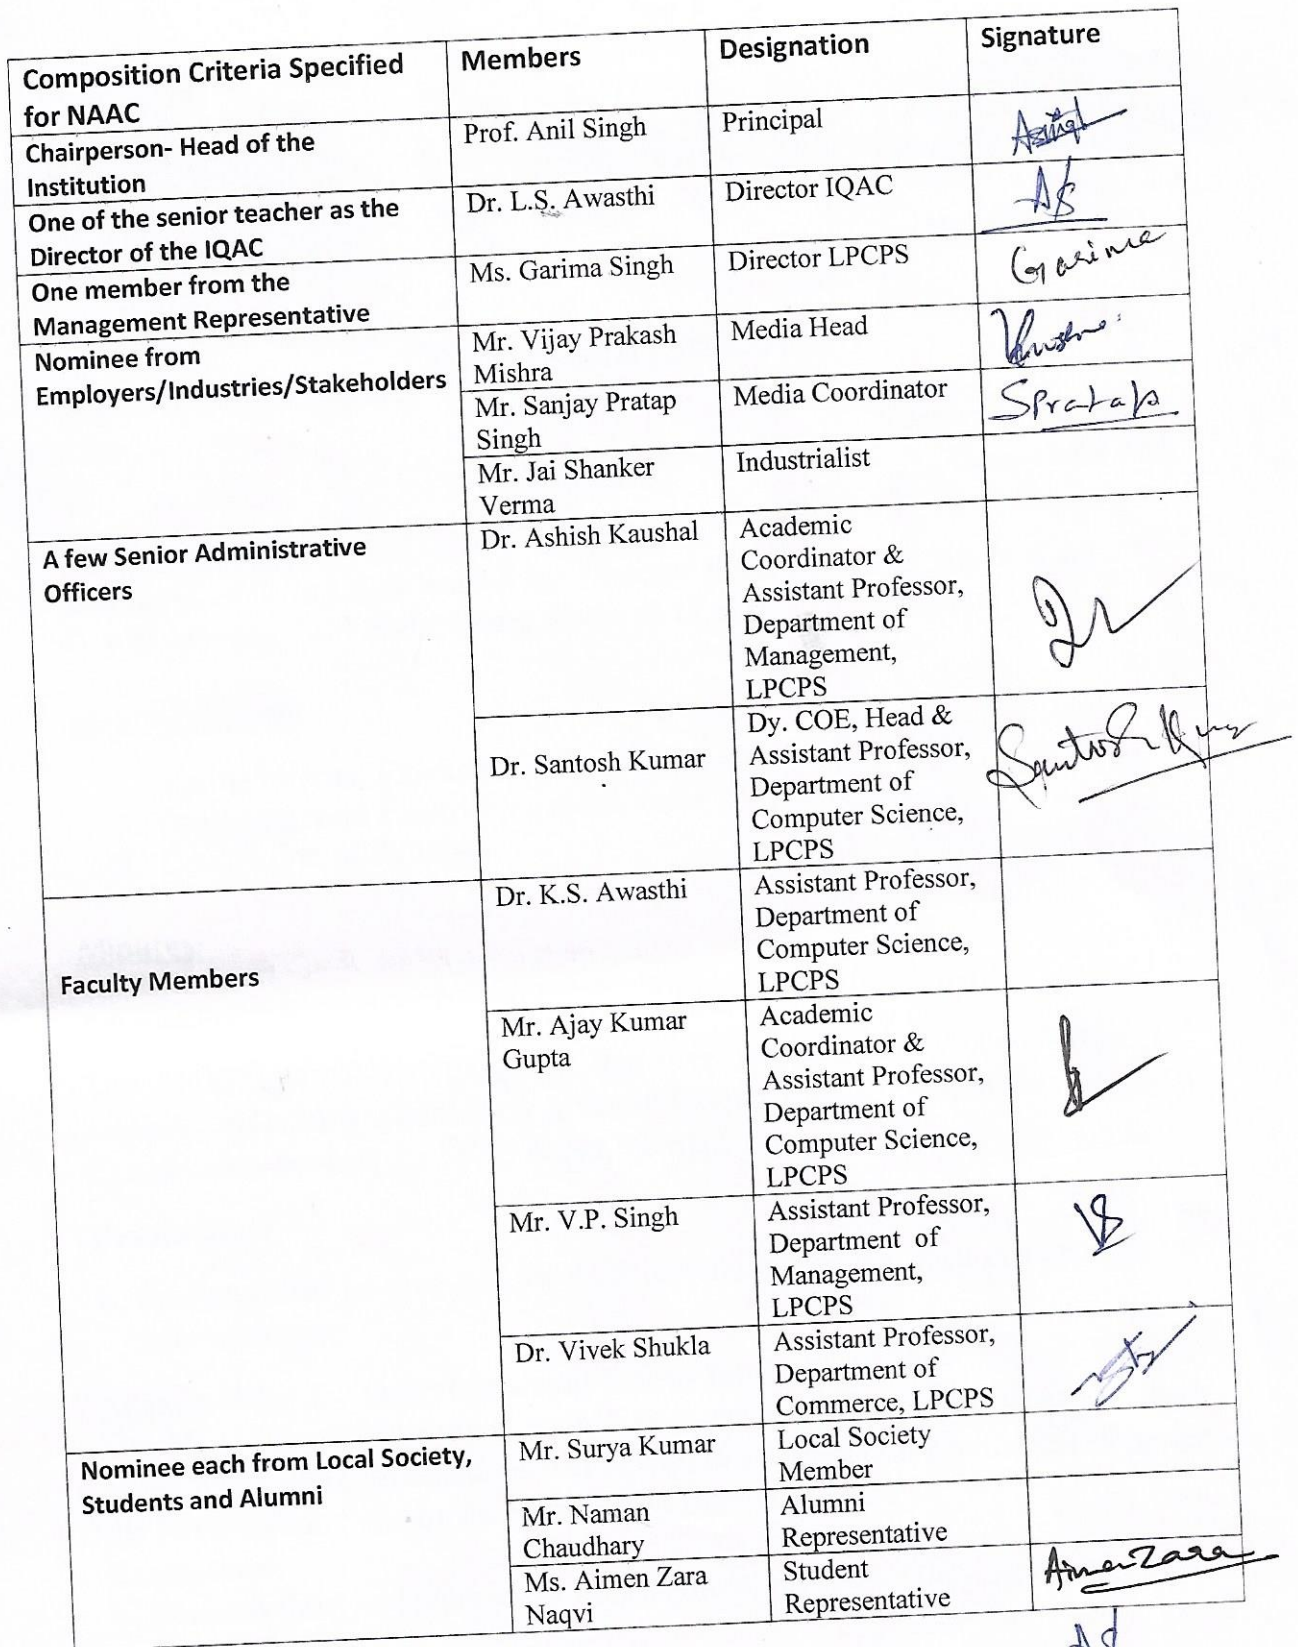 Composition Criteria Specified
for NAAC
Members
Designation
Signature
Chairperson- Head of the
Institution
Prof. Anil Singh
Principal
One of the senior teacher as the
Director of the IQAC
Dr. L.S. Awasthi
Director IQAC
One member from the
Management Representative
Ms. Garima Singh
Director LPCPS
Garima
Nominee from
Employers/Industries/Stakeholders
Mr. Vijay Prakash
Mishra
Media Head
Mr. Sanjay Pratap
Singh
Media Coordinator
SPratap
Mr. Jai Shanker
Verma
Industrialist
A few Senior Administrative
Officers
Dr. Ashish Kaushal
Academic
Coordinator &
Assistant Professor,
Department of
Management,
LPCPS
Dr. Santosh Kumar
Dy. COE, Head &
Assistant Professor,
Department of
Computer Science,
LPCPS
Santosh Kumar
Faculty Members
Dr. K.S. Awasthi
Assistant Professor,
Department of
Computer Science,
LPCPS
Mr. Ajay Kumar
Gupta
Academic
Coordinator &
Assistant Professor,
Department of
Computer Science,
LPCPS
Mr. V.P. Singh
Assistant Professor,
Department of
Management,
LPCPS
Dr. Vivek Shukla
Assistant Professor,
Department of
Commerce, LPCPS
Nominee each from Local Society,
Students and Alumni
Mr. Surya Kumar
Local Society
Member
Mr. Naman
Chaudhary
Alumni
Representative
Ms. Aimen Zara
Naqvi
Student
Representative
Aimen Zara